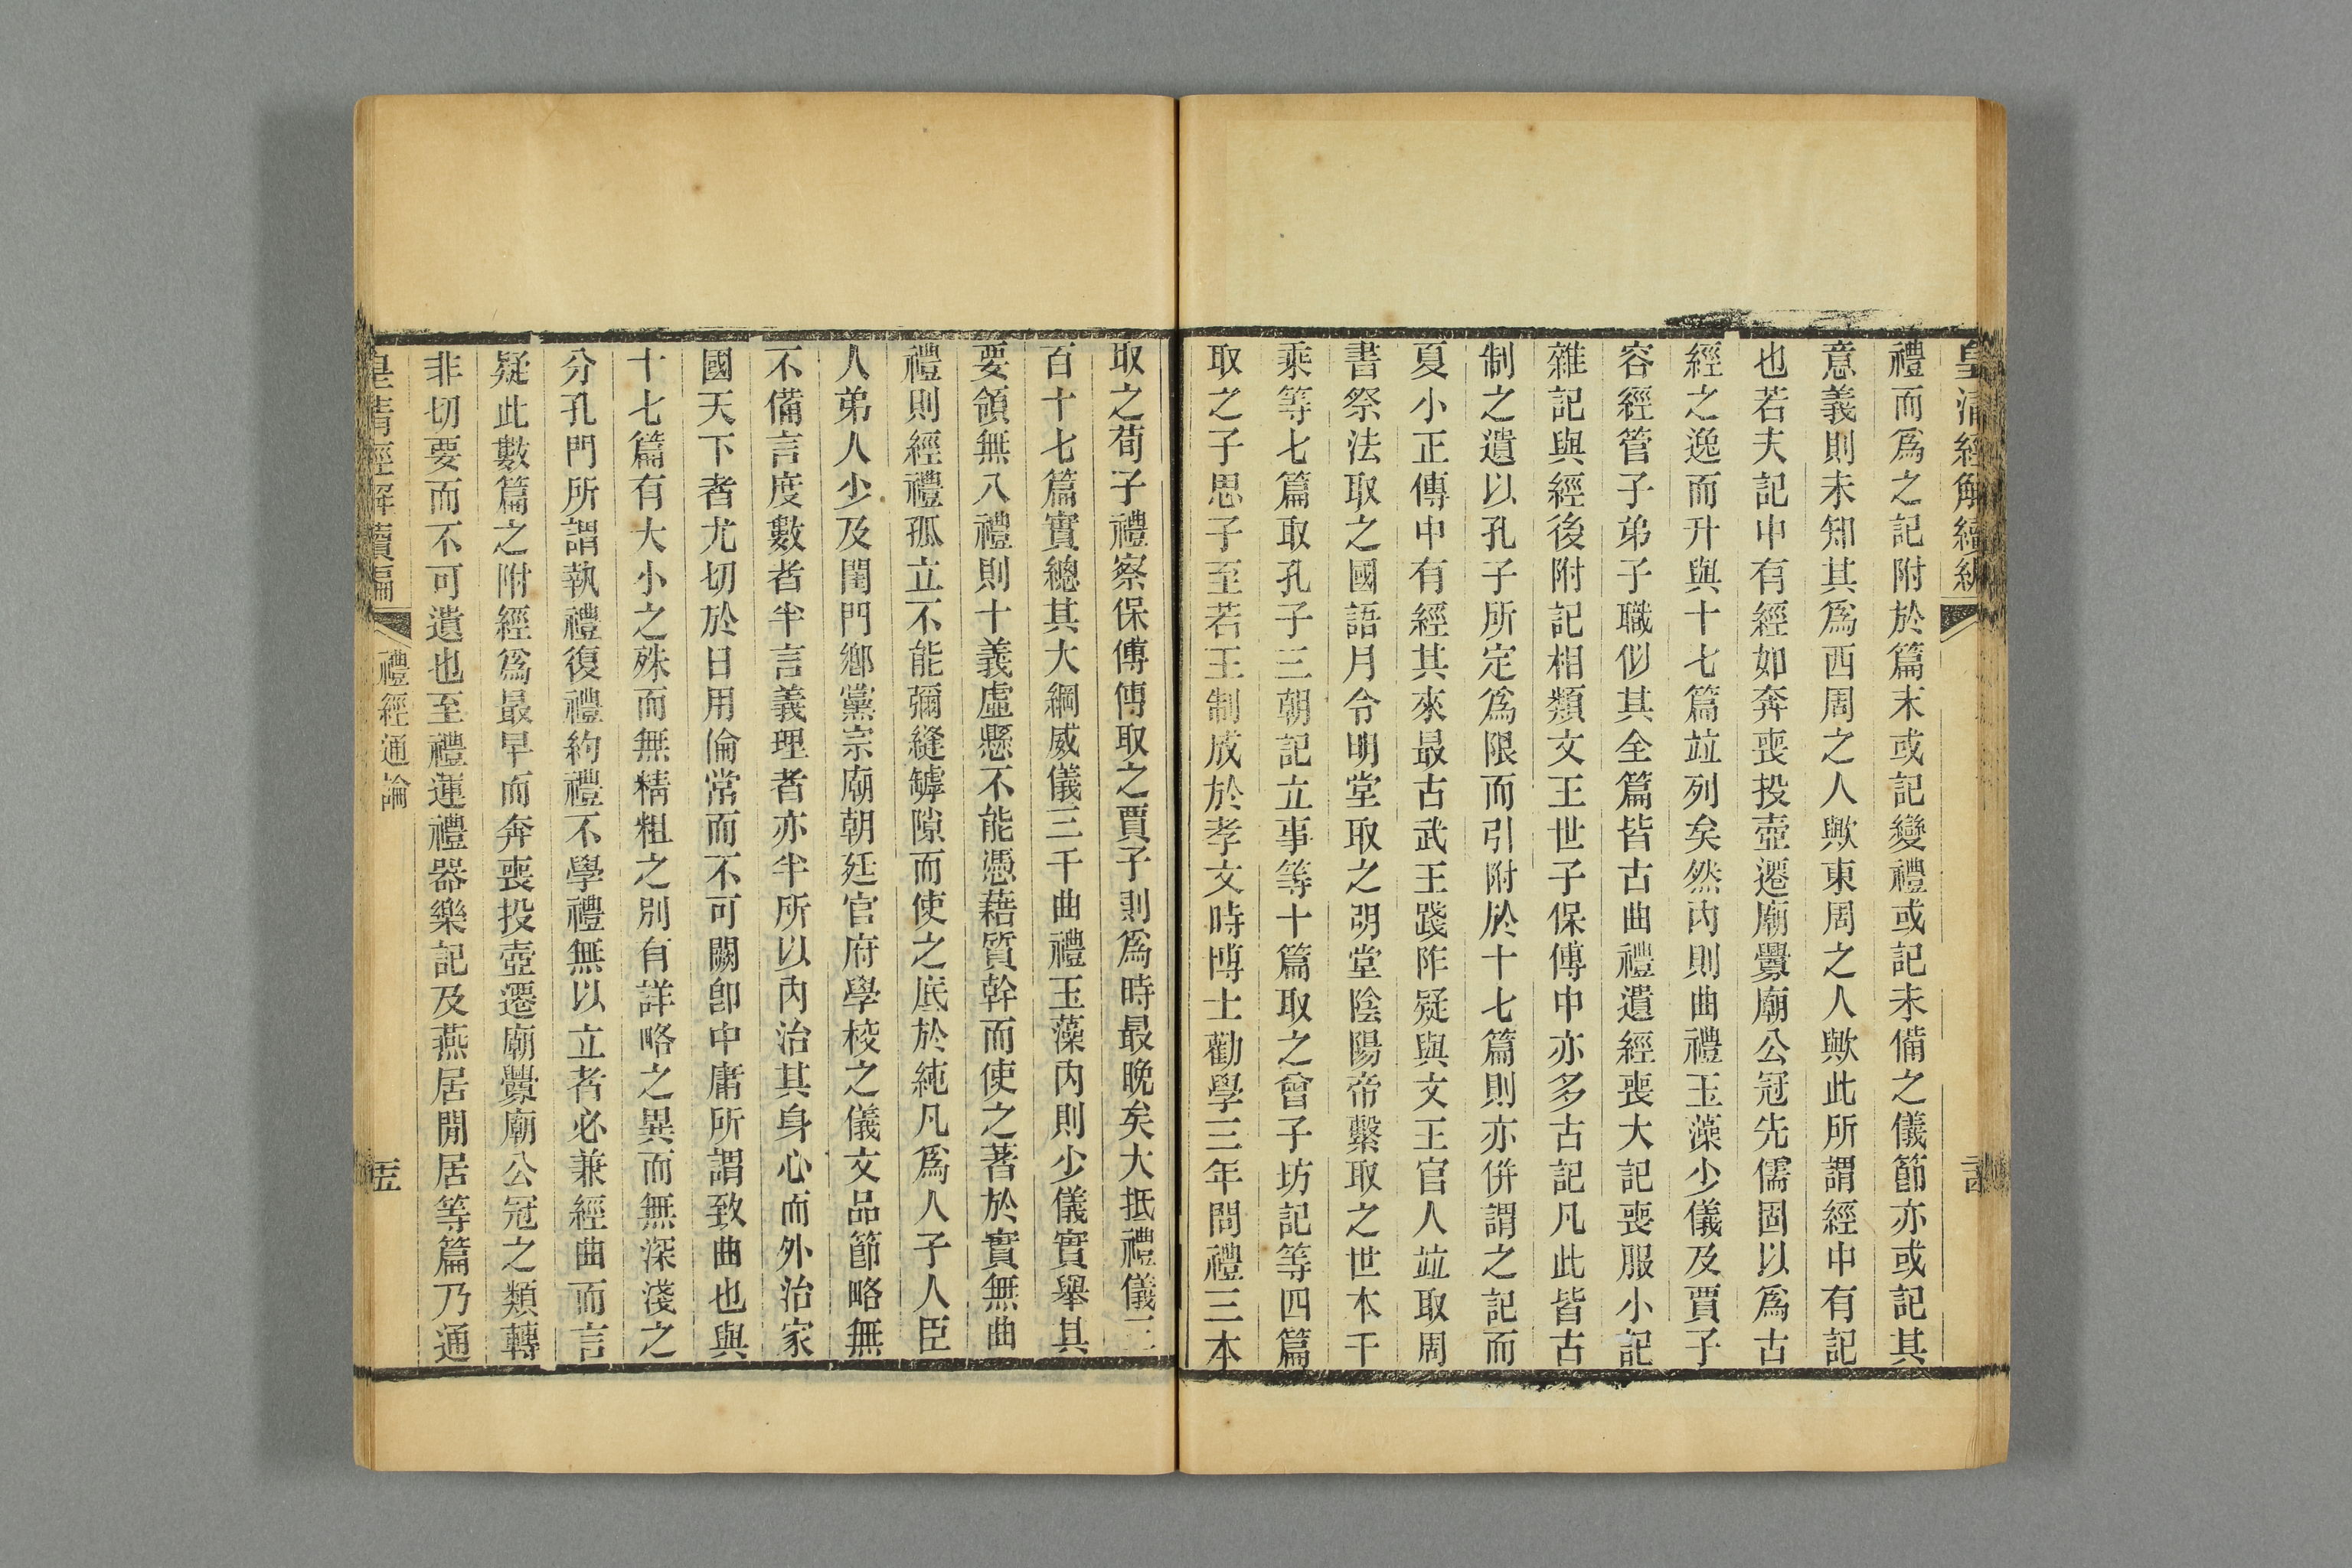 皇清經解續編
禮而爲之記附於篇末或記變禮或記未備之儀節亦或記其
意義則未知其爲西周之人歟東周之人歟此所謂經中有記
也若夫記中有經如奔喪投壺遷廟釁廟公冠先儒固以爲古
經之逸而升與十七篇竝列矣然內則曲禮玉藻少儀及賈子
容經管子弟子職似其全篇皆古曲禮遺經喪大記喪服小記
雜記與經後附記相類文王世子保傅中亦多古記凡此皆古
制之遺以孔子所定爲限而引附於十七篇則亦併謂之記而
夏小正傳中有經其來最古武王踐阼疑與文王官人竝取周
書祭法取之國語月令明堂取之明堂陰陽帝繫取之世本千
乘等七篇取孔子三朝記立事等十篇取之曾子坊記等四篇
取之子思子至若王制成於孝文時博士勸學三年問禮三本
取之荀子禮察保傅傳取之賈子則爲時最晚矣大抵禮儀三
百十七篇實總其大綱威儀三千曲禮玉藻內則少儀實舉其
要領無八禮則十義虛懸不能憑藉質幹而使之著於實無曲
禮則經禮孤立不能彌縫罅隙而使之底於純凡爲人子人臣
人弟人少及閨門鄉黨宗廟朝廷官府學校之儀文品節略無
不備言度數者半言義理者亦半所以內治其身心而外治家
國天下者尤切於日用倫常而不可闕卽中庸所謂致曲也與
十七篇有大小之殊而無精粗之別有詳略之異而無深淺之
分孔門所謂執禮復禮約禮不學禮無以立者必兼經曲而言
疑此數篇之附經爲最早而奔喪投壺遷廟釁廟公冠之類轉
非切要而不可遺也至禮運禮器樂記及燕居閒居等篇乃通
皇清經解續編
禮經通論